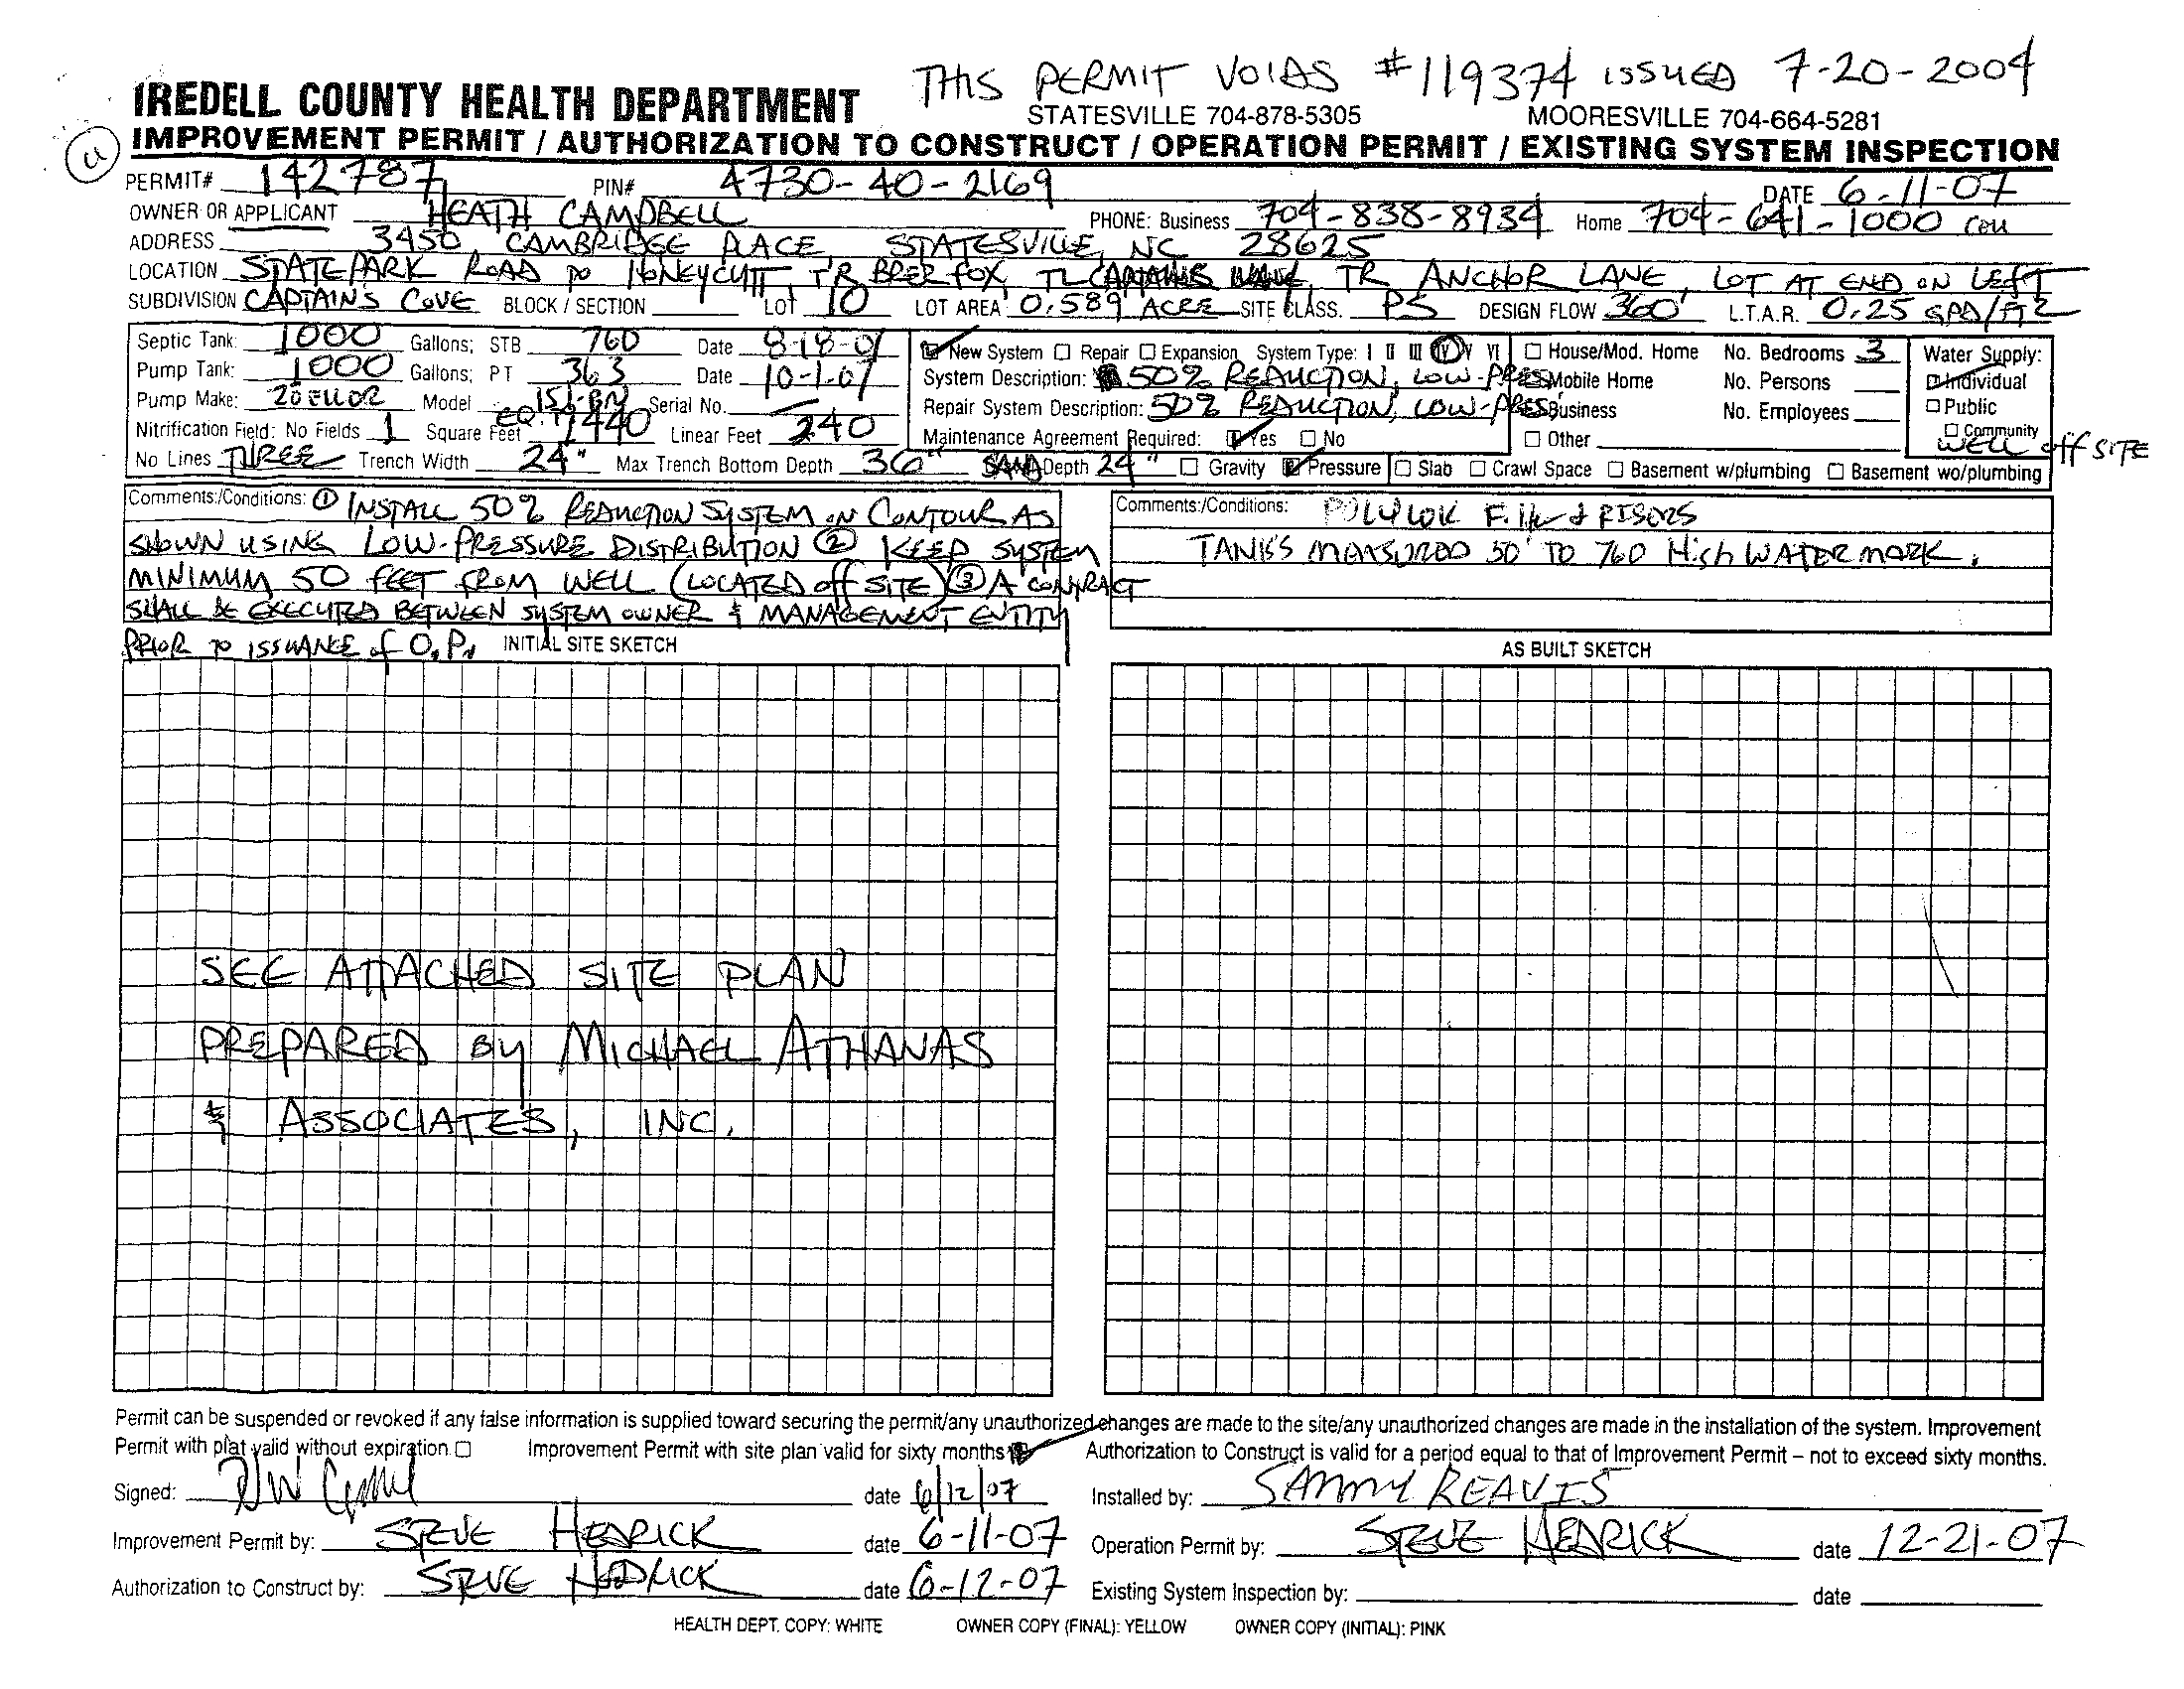 THIS PERMIT VOIDS #119374 ISSUED 7-20-2004
IREDELL COUNTY HEALTH DEPARTMENT
STATESVILLE 704-878-5305 MOORESVILLE 704-664-5281
IMPROVEMENT PERMIT / AUTHORIZATION TO CONSTRUCT / OPERATION PERMIT / EXISTING SYSTEM INSPECTION
PERMIT# 142787 PIN# 4730-40-2169 DATE 6-11-07
OWNER OR APPLICANT HEATH CAMPBELL PHONE: Business 704-838-8934 Home 704-641-1000 cell
ADDRESS 3450 CAMBRIDGE PLACE, STATESVILLE, NC 28625
LOCATION STATE PARK ROAD TO HONEYCUTT, TR BRER FOX, TL TR ANCHOR LANE, LOT AT END ON LEFT
SUBDIVISION CAPTAIN'S COVE BLOCK / SECTION LOT 10 LOT AREA 0.589 ACRE SITE CLASS. PS DESIGN FLOW 360 L.T.A.R. 0.25 GPD/FT2
Septic Tank: 1000 Gallons; STB 760 Date 8-18-07
Pump Tank: 1000 Gallons; PT 363 Date 10-1-07
Pump Make: Zoeller Model 151-BN Serial No.
Nitrification Field: No Fields 1 Square Feet EQ. 1440 Linear Feet 240
No Lines THREE Trench Width 24" Max Trench Bottom Depth 36" SAND Depth 24" ☐ Gravity ☑ Pressure
☑ New System ☐ Repair ☐ Expansion System Type: I II III IV V VI
System Description: 50% REDUCTION, LOW-PRESS.
Repair System Description: 50% REDUCTION, LOW-PRESS.
Maintenance Agreement Required: ☑ Yes ☐ No
☐ House/Mod. Home No. Bedrooms 3
Mobile Home No. Persons
Business No. Employees
☐ Other
Water Supply:
☑ Individual
☐ Public
☐ Community
WELL off SITE
☐ Slab ☐ Crawl Space ☐ Basement w/plumbing ☐ Basement wo/plumbing
Comments:/Conditions: ① INSTALL 50% REDUCTION SYSTEM ON CONTOUR AS
SHOWN USING LOW-PRESSURE DISTRIBUTION ② KEEP SYSTEM
MINIMUM 50 FEET FROM WELL (LOCATED off SITE) ③ A CONTRACT
SHALL BE EXECUTED BETWEEN SYSTEM OWNER & MANAGEMENT ENTITY
PRIOR TO ISSUANCE of O.P.
Comments:/Conditions: POLYLOK Filter & RISERS
TANKS MEASURED 50' TO 760 High WATER MARK.
INITIAL SITE SKETCH
AS BUILT SKETCH
SEE ATTACHED SITE PLAN
PREPARED BY MICHAEL ATHANAS
& ASSOCIATES, INC.
Permit can be suspended or revoked if any false information is supplied toward securing the permit/any unauthorized changes are made to the site/any unauthorized changes are made in the installation of the system. Improvement
Permit with plat valid without expiration. ☐ Improvement Permit with site plan valid for sixty months ☑ Authorization to Construct is valid for a period equal to that of Improvement Permit – not to exceed sixty months.
Signed: date 6/12/07 Installed by: SAMMY REAVIS
Improvement Permit by: STEVE HEDRICK date 6-11-07 Operation Permit by: STEVE HEDRICK date 12-21-07
Authorization to Construct by: STEVE HEDRICK date 6-12-07 Existing System Inspection by: date
HEALTH DEPT. COPY: WHITE OWNER COPY (FINAL): YELLOW OWNER COPY (INITIAL): PINK